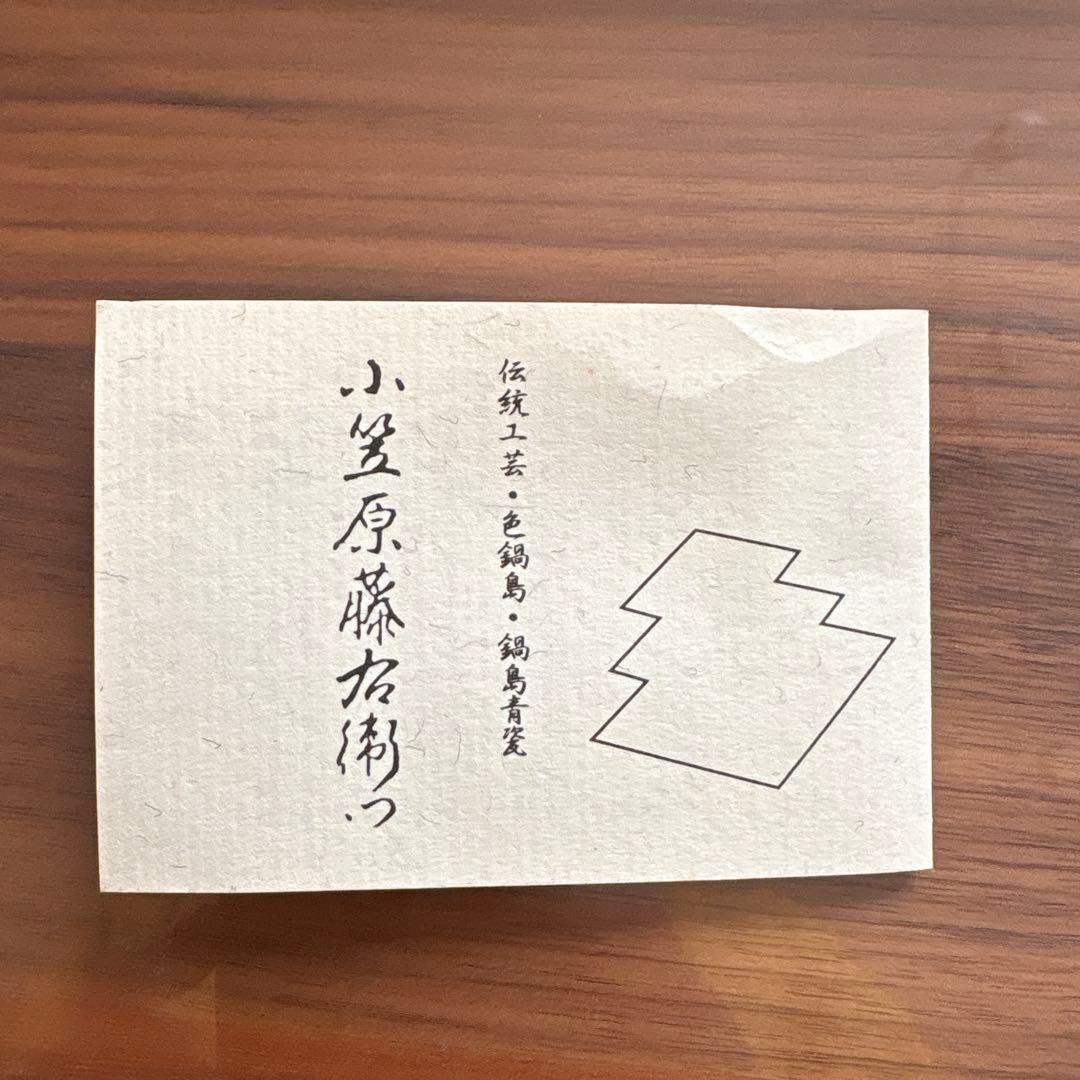 伝統工芸・色鍋島・鍋島青瓷
小笠原藤右衛門